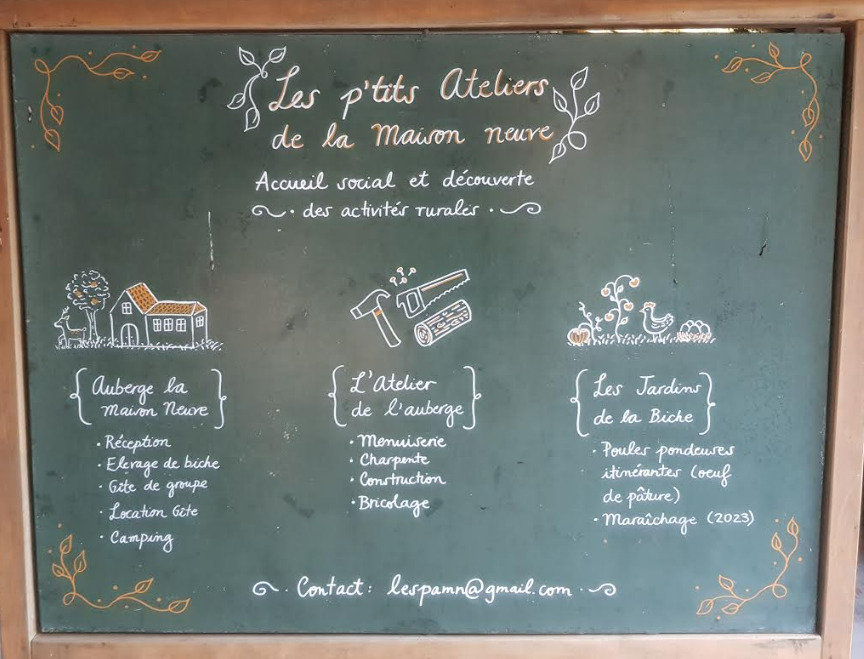 Les p'tits Ateliers
de la Maison neuve
Accueil social et découverte
des activités rurales
Auberge la
Maison Neuve
• Réception
• Elevage de biche
• Gîte de groupe
• Location Gîte
• Camping
L'Atelier
de l'auberge
• Menuiserie
• Charpente
• Construction
• Bricolage
Les Jardins
de la Biche
• Poules pondeuses
itinérantes (oeuf
de pâture)
• Maraîchage (2023)
Contact : lespamn@gmail.com